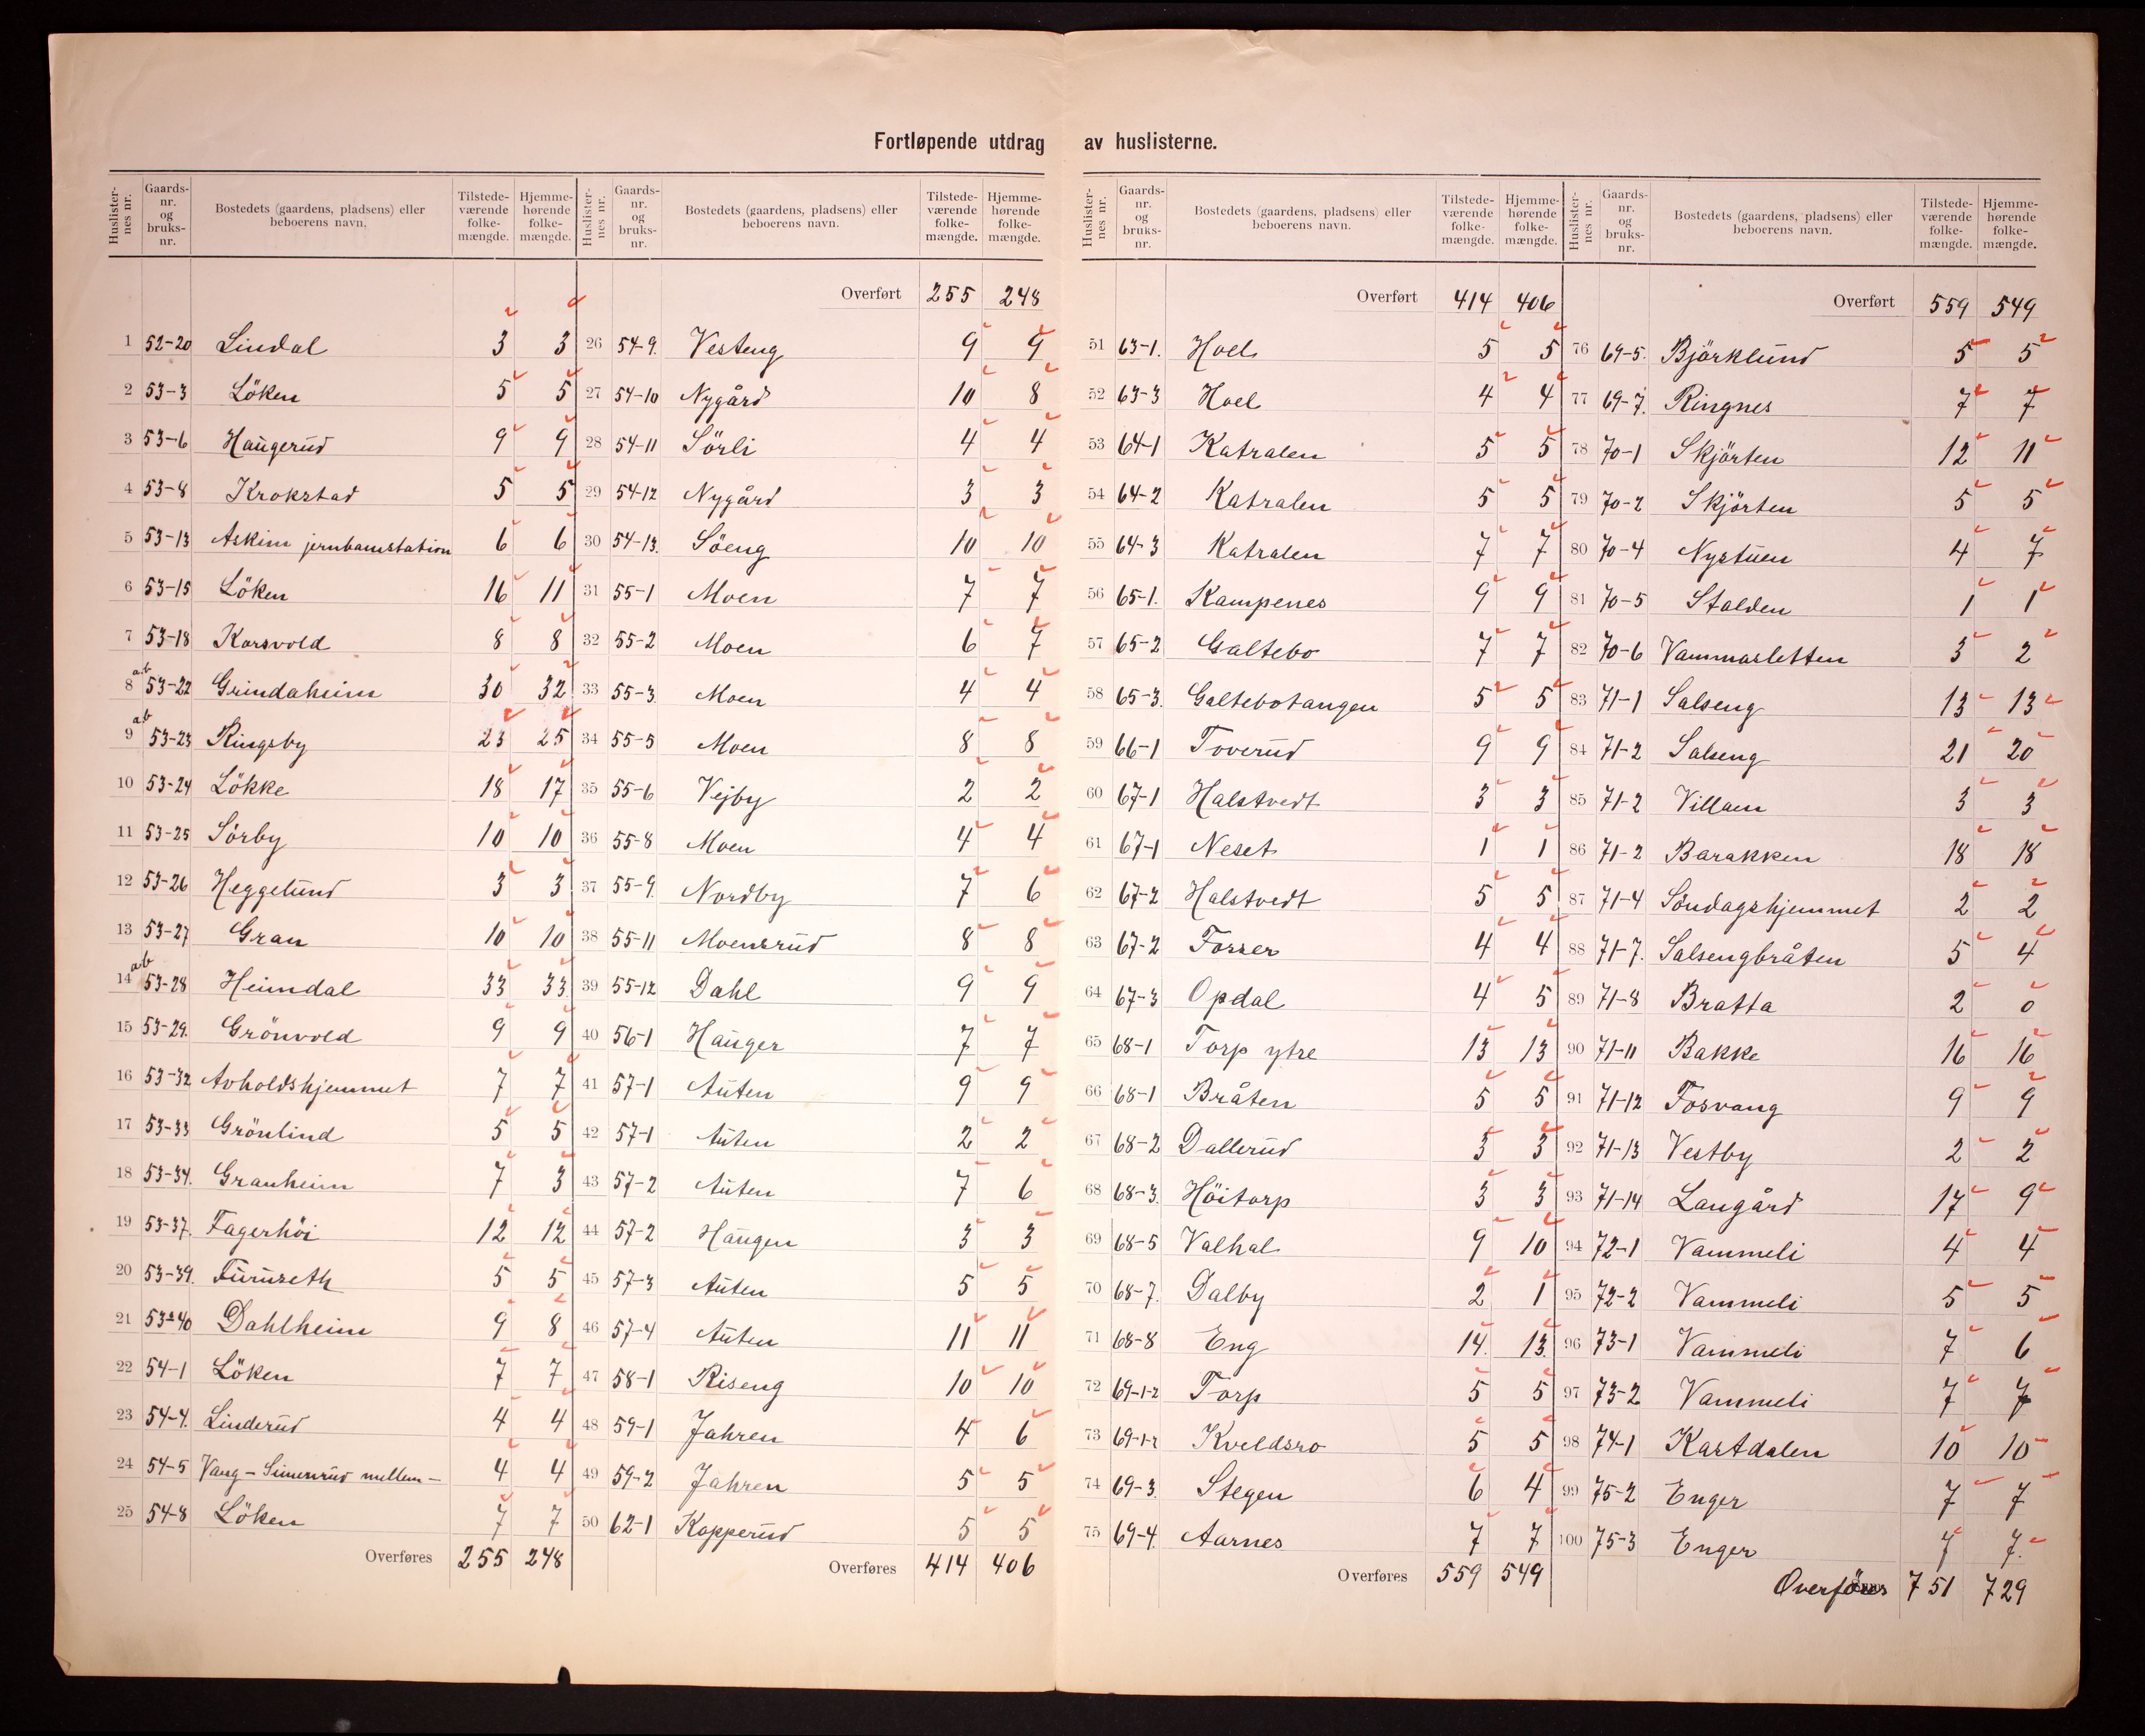 Fortløpende utdrag av huslisterne.
Huslisternes nr. | Gaards-nr. og bruks-nr. | Bostedets (gaardens, pladsens) eller beboerens navn. | Tilstede-værende folke-mængde. | Hjemme-hørende folke-mængde.
1 52-20 Lindal 3 3
2 53-3 Löken 5 5
3 53-6 Haugerud 9 9
4 53-8 Krokstad 5 5
5 53-13 Askim jernbanestation 6 6
6 53-15 Löken 16 11
7 53-18 Korsvold 8 8
8 ab 53-22 Grindaheim 30 32
9 ab 53-23 Ringsby 23 25
10 53-24 Lökke 18 17
11 53-25 Sörby 10 10
12 53-26 Heggelund 3 3
13 53-27 Gran 10 10
14 ab 53-28 Heimdal 33 33
15 53-29. Grönvold 9 9
16 53-32 Avholdshjemmet 7 7
17 53-33 Grönlind 5 5
18 53-34. Granheim 7 3
19 53-37. Fagerhöi 12 12
20 53-39. Furuseth 5 5
21 53-40 Dahlheim 9 8
22 54-1 Löken 7 7
23 54-4. Linderud 4 4
24 54-5 Vang - Simenrud mellem - 4 4
25 54-8 Löken 7 7
Overføres 255 248
Huslisternes nr. | Gaards-nr. og bruks-nr. | Bostedets (gaardens, pladsens) eller beboerens navn. | Tilstede-værende folke-mængde. | Hjemme-hørende folke-mængde.
Overført 255 248
26 54-9. Vesteng 9 9
27 54-10 Nygård 10 8
28 54-11 Sörli 4 4
29 54-12 Nygård 3 3
30 54-13. Söeng 10 10
31 55-1 Moen 7 7
32 55-2 Moen 6 7
33 55-3 Moen 4 4
34 55-5 Moen 8 8
35 55-6 Vejby 2 2
36 55-8 Moen 4 4
37 55-9. Nordby 7 6
38 55-11 Moensrud 8 8
39 55-12 Dahl 9 9
40 56-1 Hauger 7 7
41 57-1 Auten 9 9
42 57-1 Auten 2 2
43 57-2 Auten 7 6
44 57-2 Haugen 3 3
45 57-3 Auten 5 5
46 57-4 Auten 11 11
47 58-1 Riseng 10 10
48 59-1 Jahren 4 6
49 59-2 Jahren 5 5
50 62-1 Kopperud 5 5
Overføres 414 406
Huslisternes nr. | Gaards-nr. og bruks-nr. | Bostedets (gaardens, pladsens) eller beboerens navn. | Tilstede-værende folke-mængde. | Hjemme-hørende folke-mængde.
Overført 414 406
51 63-1. Hoel 5 5
52 63-3 Hoel 4 4
53 64-1 Katralen 5 5
54 64-2 Katralen 5 5
55 64-3 Katralen 7 7
56 65-1. Kampenes 9 9
57 65-2 Galtebo 7 7
58 65-3. Galtebotangen 5 5
59 66-1 Toverud 9 9
60 67-1 Halstvedt 3 3
61 67-1 Neset 1 1
62 67-2 Halstvedt 5 5
63 67-2 Fosser 4 4
64 67-3 Opdal 4 5
65 68-1 Torp ytre 13 13
66 68-1 Bråten 5 5
67 68-2 Dallerud 3 3
68 68-3. Höitorp 3 3
69 68-5 Valhal 9 10
70 68-7. Dalby 2 1
71 68-8 Eng 14. 13.
72 69-1-2 Torp 5 5
73 69-1-2 Kveldsro 5 5
74 69-3. Stegen 6 4
75 69-4. Aarnes 7 7
Overføres 559 549
Huslisternes nr. | Gaards-nr. og bruks-nr. | Bostedets (gaardens, pladsens) eller beboerens navn. | Tilstede-værende folke-mængde. | Hjemme-hørende folke-mængde.
Overført 559 549
76 69-5. Björklund 5 5
77 69-7. Ringnes 7 7
78 70-1 Skjörten 12 11
79 70-2 Skjörten 5 5
80 70-4 Nystuen 4 7
81 70-5 Stalden 1 1
82 70-6 Vammasletten 3 2
83 71-1 Salseng 13 13
84 71-2 Salseng 21 20
85 71-2 Villaen 3 3
86 71-2 Barakken 18 18
87 71-4 Söndagshjemmet 2 2
88 71-7. Salsengbråten 5 4
89 71-8 Bratta 2 0
90 71-11 Bakke 16 16
91 71-12 Fosvang 9 9
92 71-13 Vestby 2 2
93 71-14 Langård 17 9
94 72-1 Vammeli 4 4
95 72-2 Vammeli 5 5
96 73-1 Vammeli 7 6
97 73-2 Vammeli 7 7
98 74-1 Kastdalen 10 10
99 75-2 Enger 7 7
100 75-3 Enger 7 7.
Overföres 751 729